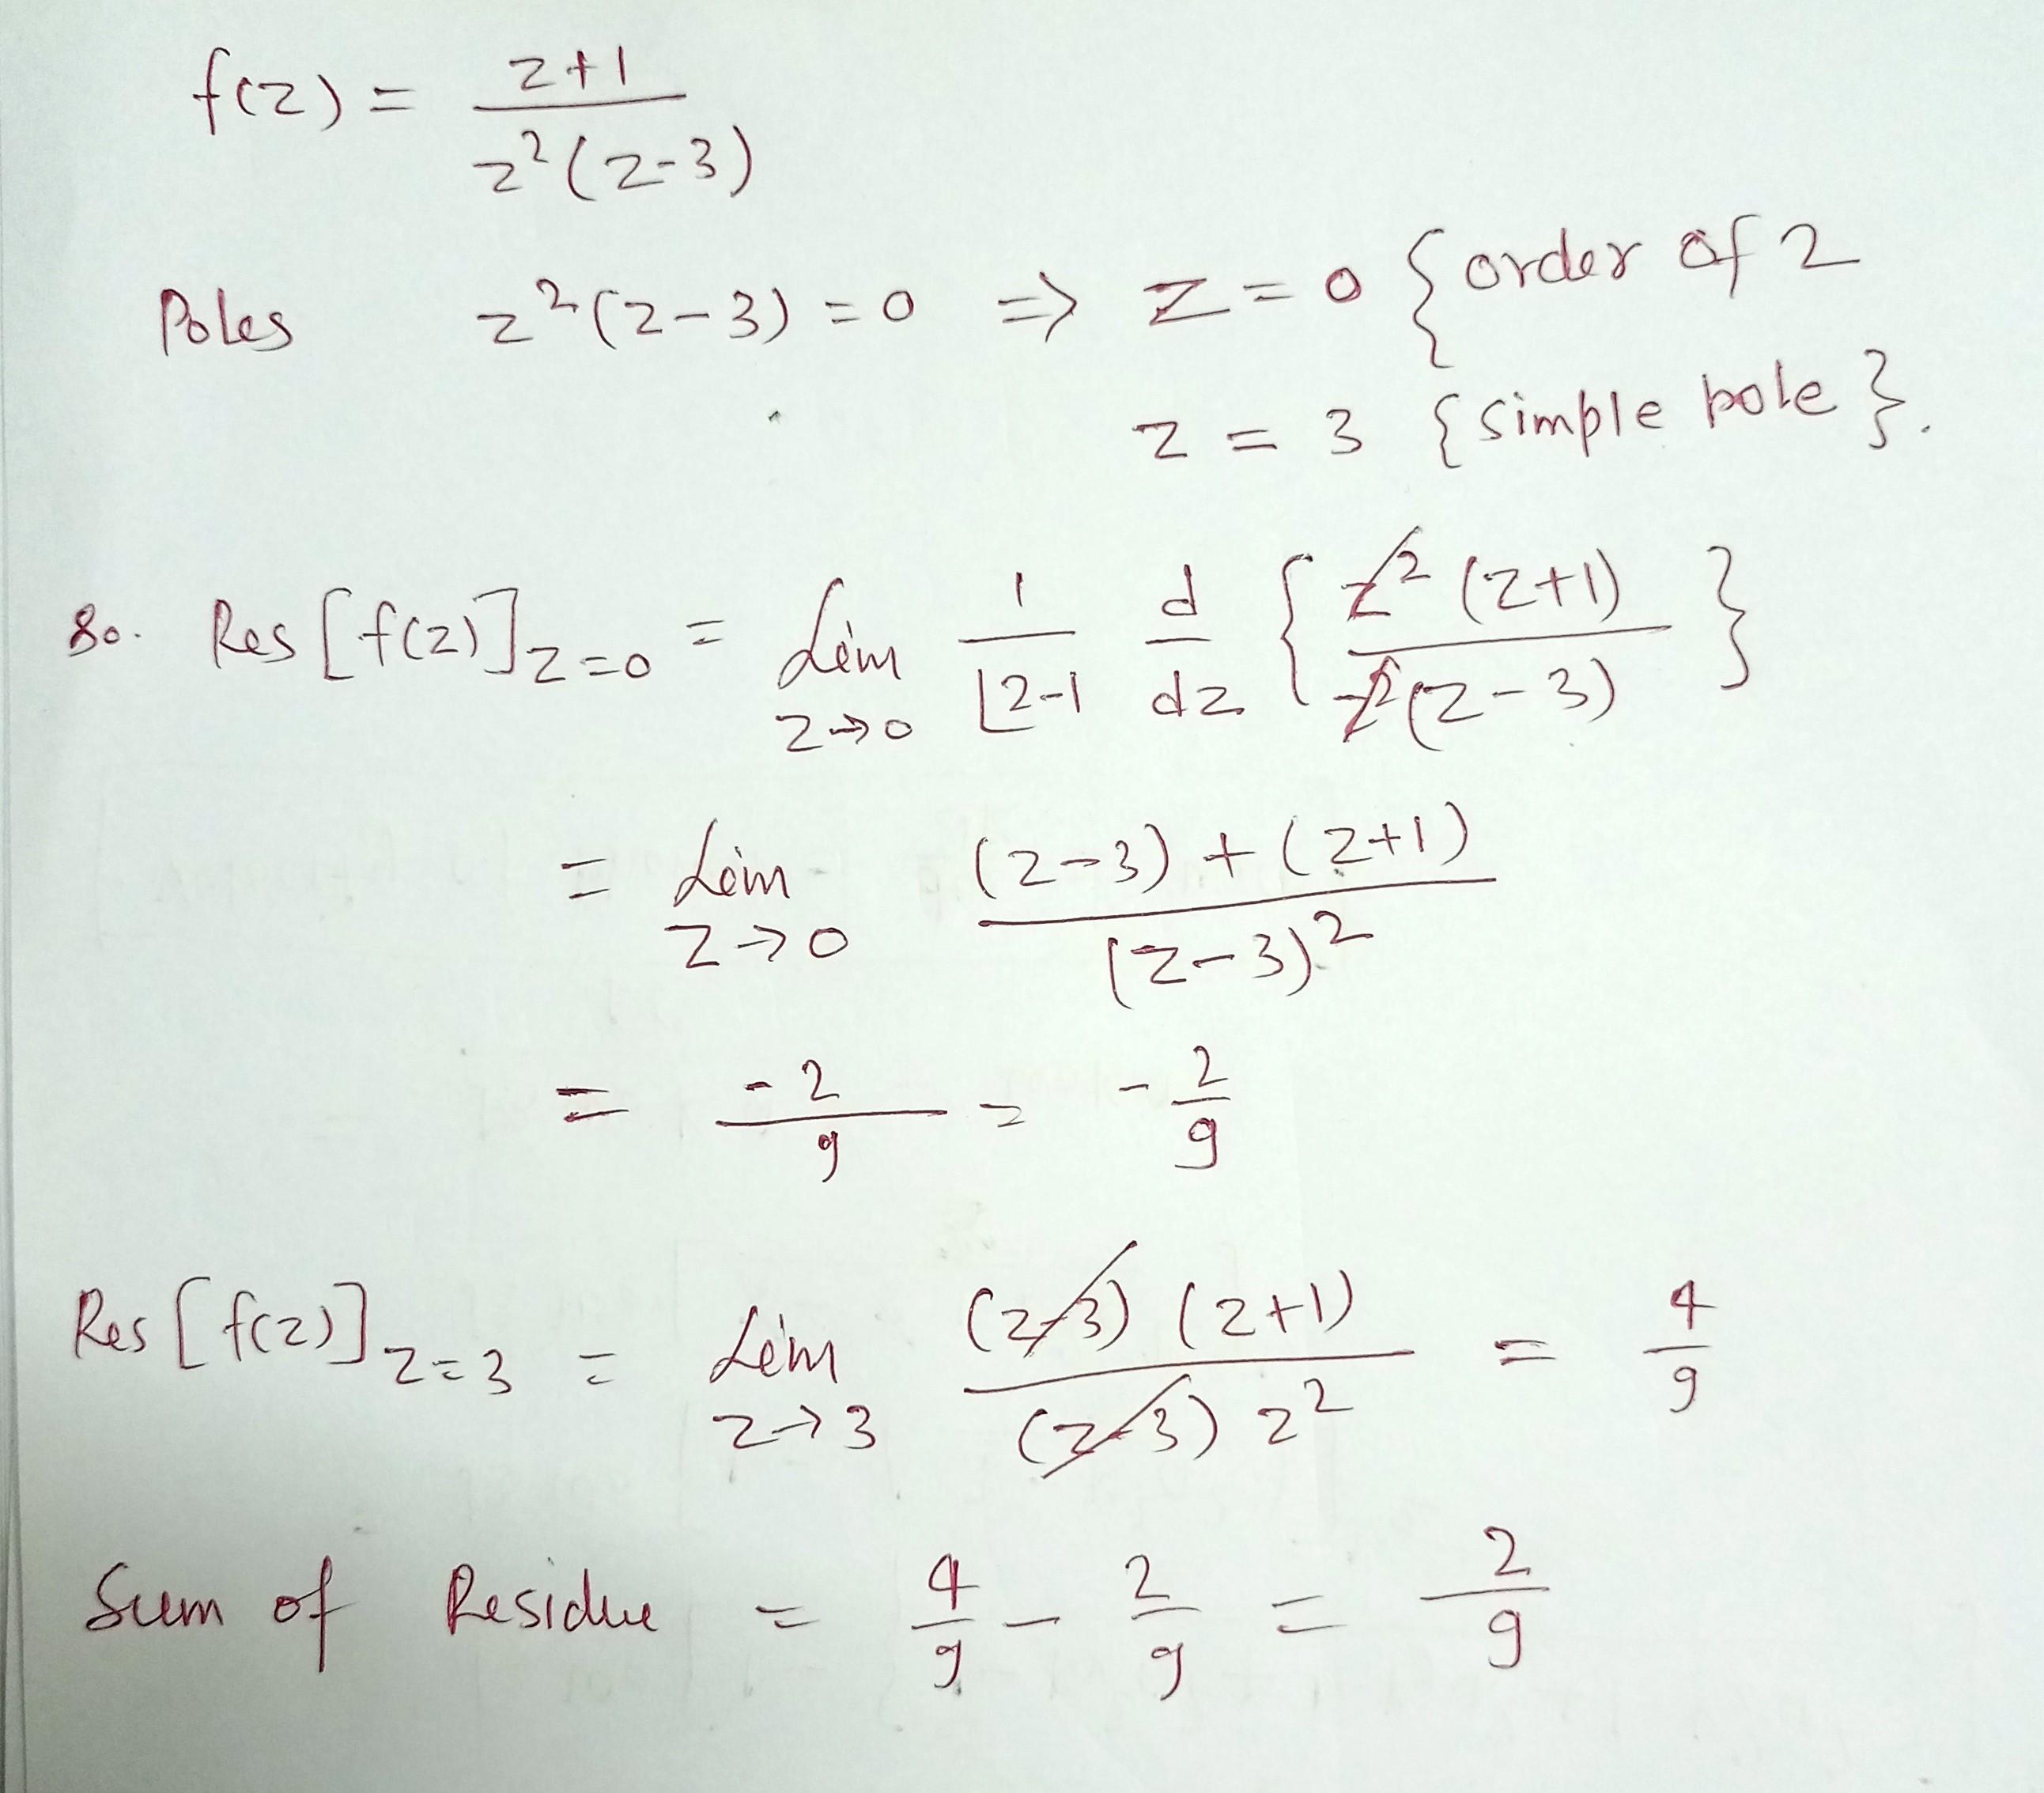 f(z) = (z+1)/(z²(z-3))
Poles z²(z-3) = 0 ⇒ z = 0 {order of 2
z = 3 {simple pole}.
So. Res [f(z)]_{z=0} = Lim_{z→0} 1/(⌊2-1) d/dz { z²(z+1)/(z²(z-3)) }
= Lim_{z→0} ((z-3) + (z+1))/(z-3)²
= -2/9 = -2/9
Res [f(z)]_{z=3} = Lim_{z→3} ((z-3)(z+1))/((z-3) z²) = 4/9
Sum of Residue = 4/9 - 2/9 = 2/9